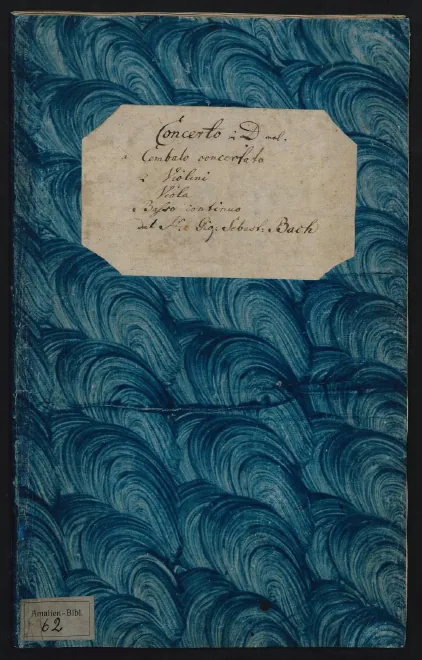 Concerto i D mol.
a
Cembalo concertato
2 Violini
Viola
Basso continuo
dal S.e Gio: Sebast: Bach
Amalien-Bibl.
62